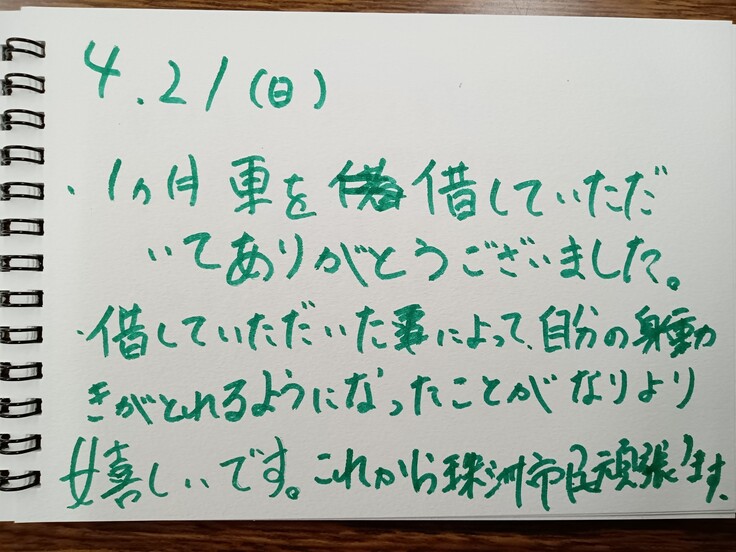 4.21(日)
・1ヵ月 車を 借していただ
いてありがとうございました。
・借していただいた事によって、自分の身動
きがとれるようになったことがなりより
嬉しいです。これから珠洲市民頑張ります。